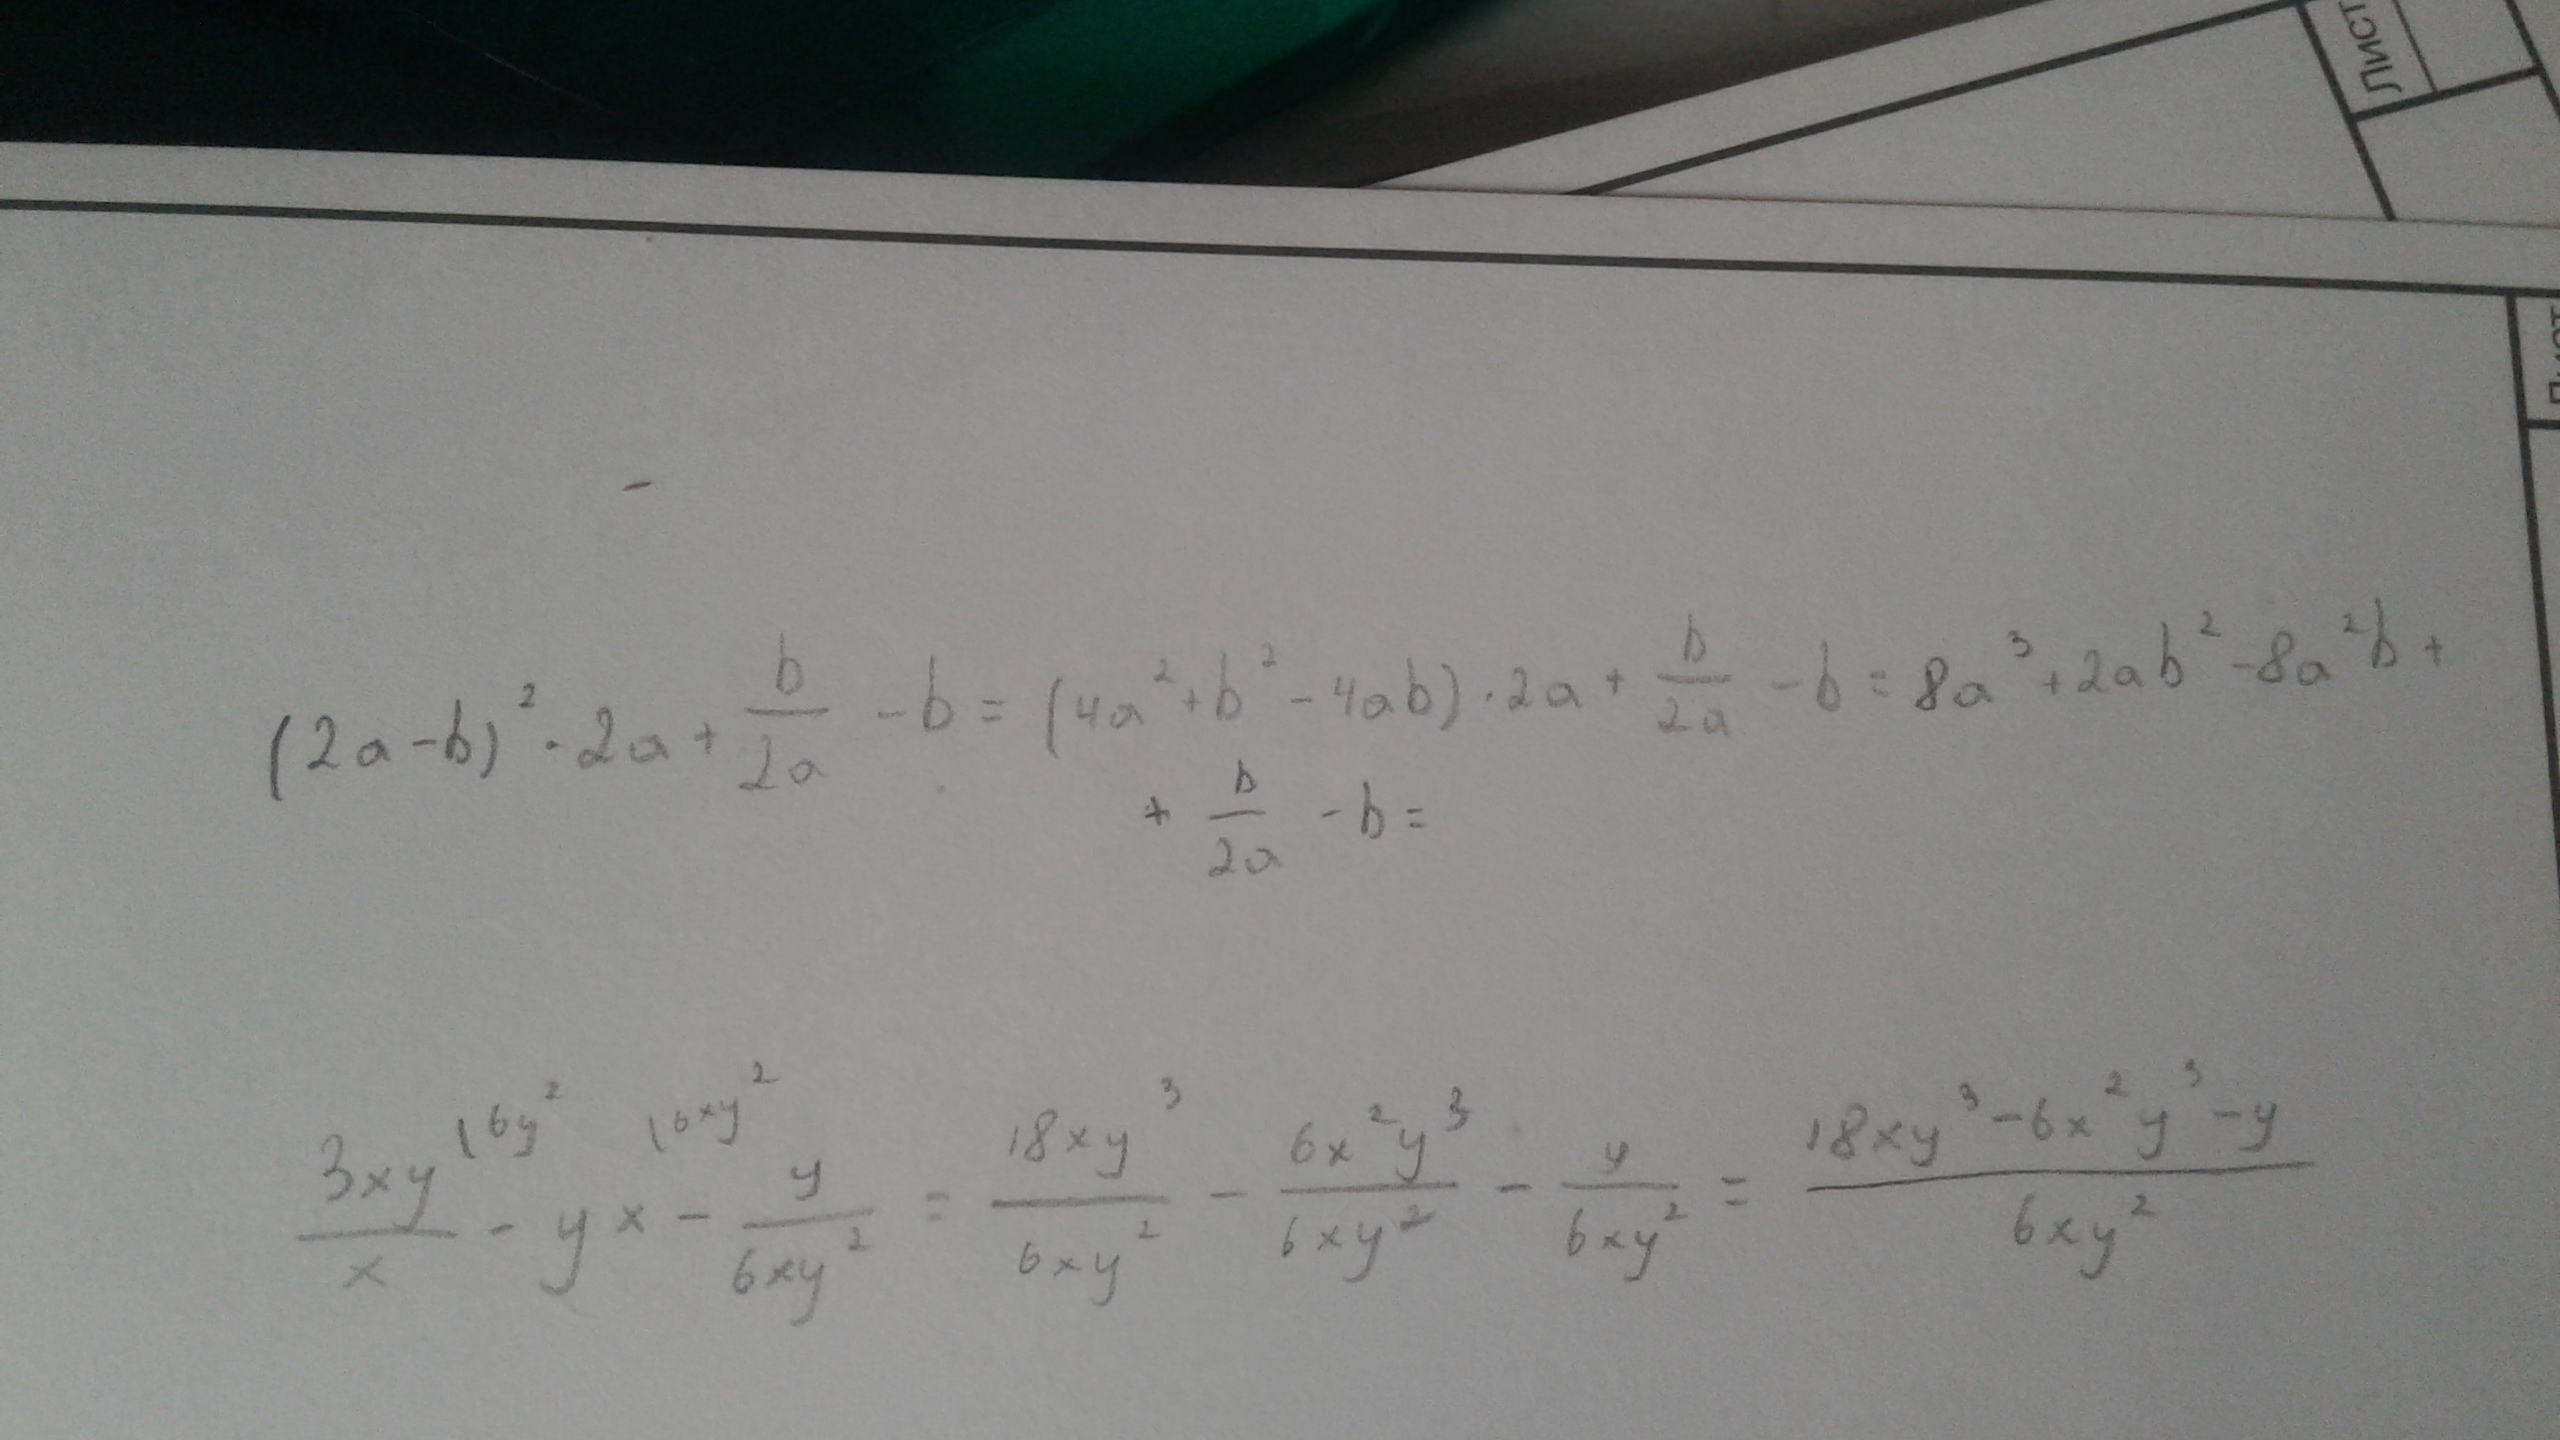 Лист
(2a-b)²·2a+b/2a-b=(4a²+b²-4ab)·2a+b/2a-b=8a³+2ab²-8a²b+
+b/2a-b=
3xy\6y²/x-yx\6xy²-y/6xy²=18xy³/6xy²-6x²y³/6xy²-y/6xy²=18xy³-6x²y³-y/6xy²